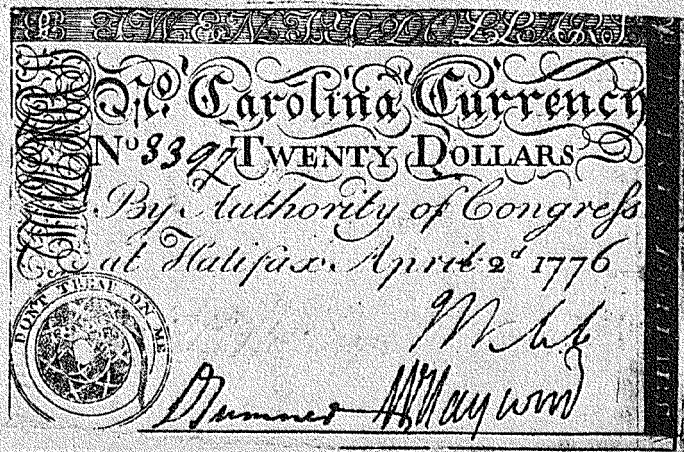 TWENTY DOLLARS
No. Carolina Currency
No 3397 TWENTY DOLLARS
By Authority of Congress
at Halifax April 2d 1776
DONT TREAD ON ME
Webb
Sumner W Haywood